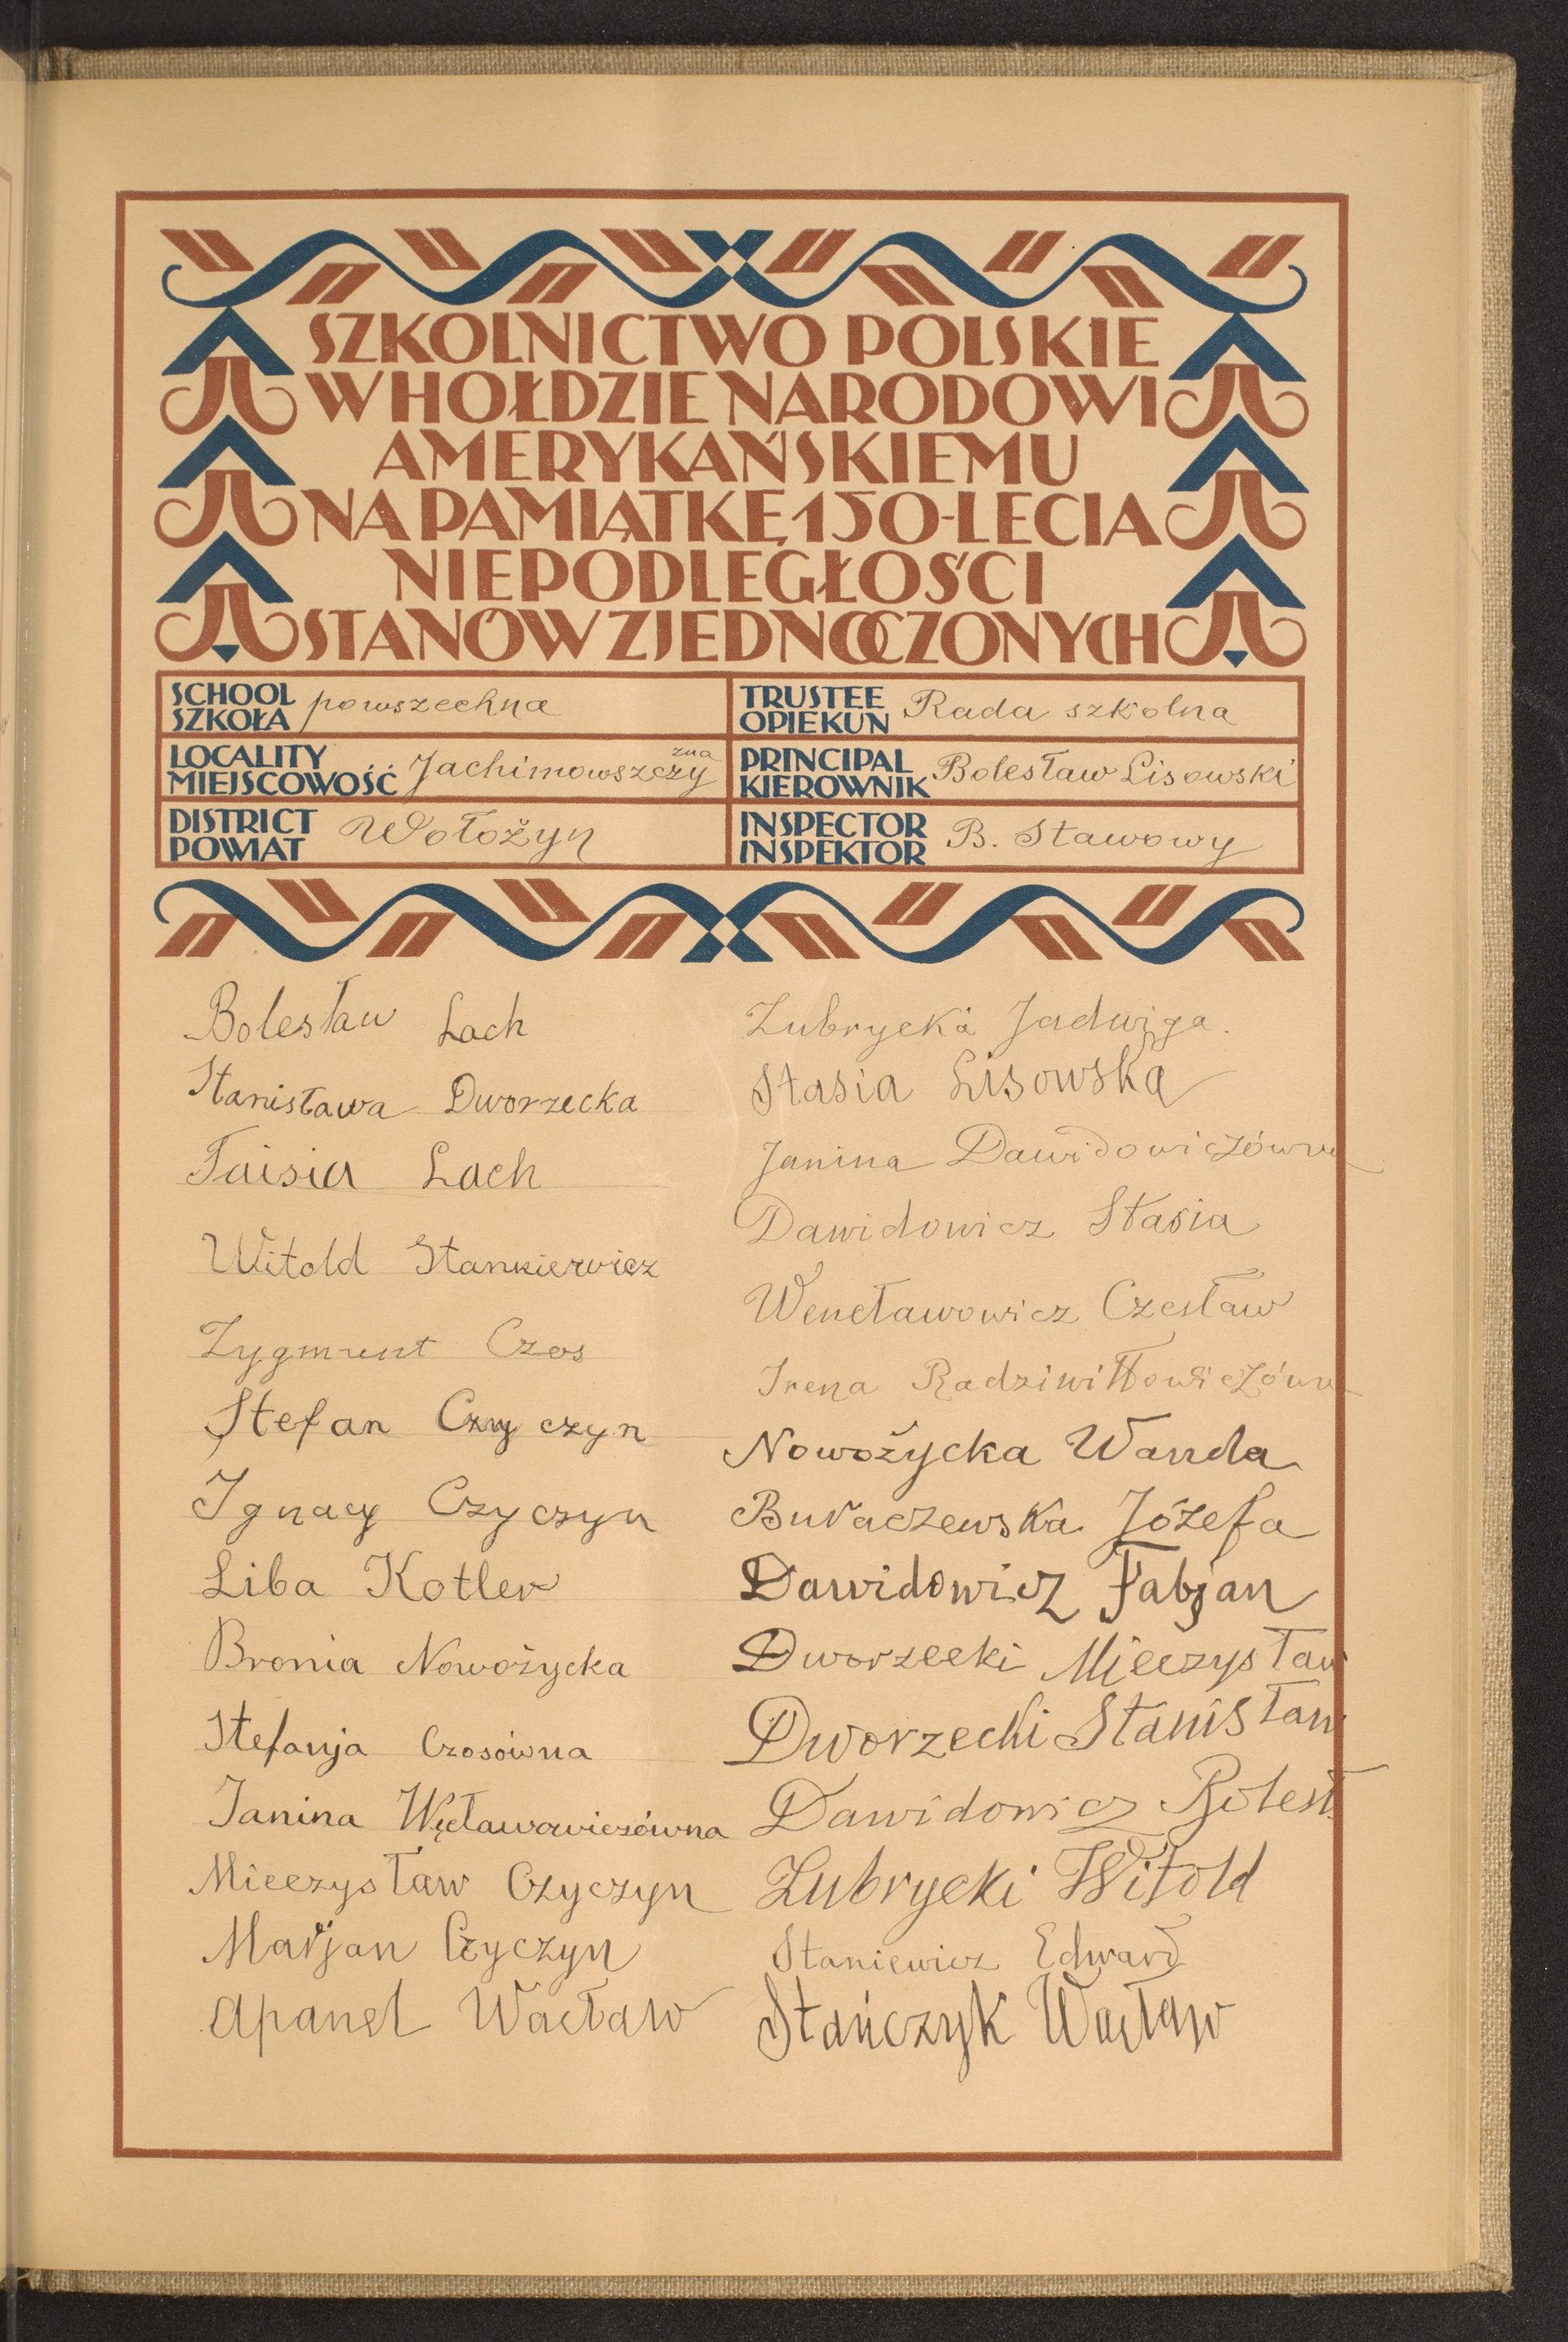 SZKOLNICTWO POLSKIE
W HOŁDZIE NARODOWI
AMERYKAŃSKIEMU
NA PAMIĄTKĘ 150-LECIA
NIEPODLEGŁOŚCI
STANÓW ZJEDNOCZONYCH
SCHOOL
SZKOŁA powszechna
TRUSTEE
OPIEKUN Rada szkolna
LOCALITY
MIEJSCOWOŚĆ Jachimowszczyzna
PRINCIPAL
KIEROWNIK Bolesław Lisowski
DISTRICT
POWIAT Wołożyn
INSPECTOR
INSPEKTOR B. Stawowy
Bolesław Lach
Stanisława Dworzecka
Taisia Lach
Witold Stankiewicz
Zygmunt Czos
Stefan Czyczyn
Ignacy Czyczyn
Liba Kotler
Bronia Nowożycka
Stefanja Czosówna
Janina Węcławowiczówna
Mieczysław Czyczyn
Marjan Czyczyn
Apanel Wacław
Zubrycka Jadwiga.
Stasia Lisowska
Janina Dawidowiczówna
Dawidowicz Stasia
Wencławowicz Czesław
Irena Radziwiłłowiczówna
Nowożycka Wanda
Buraczewska Józefa
Dawidowicz Fabjan
Dworzecki Mieczysław
Dworzecki Stanisław
Dawidowicz Bolesł.
Zubrycki Witold
Staniewicz Edward
Stańczyk Wacław